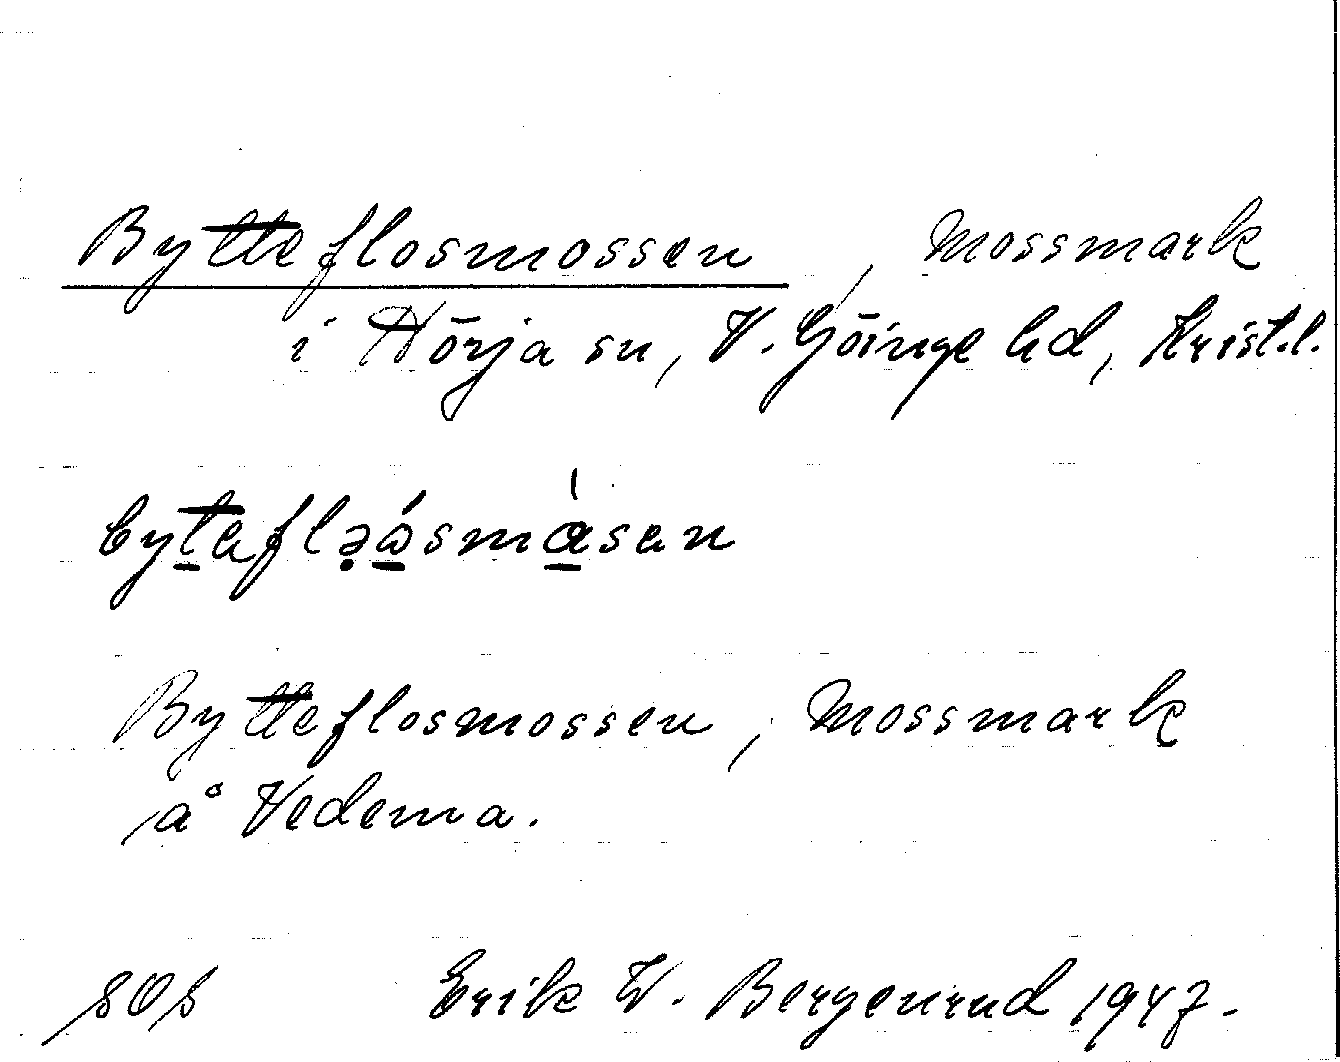 Bytteflosmossen, Mossmark
i Nörja sn, V. Göinge hd, Krist.l.
Bytteflosmossen, Mossmark
å Vedema.
sos Erik W. Bergenrud 1947.